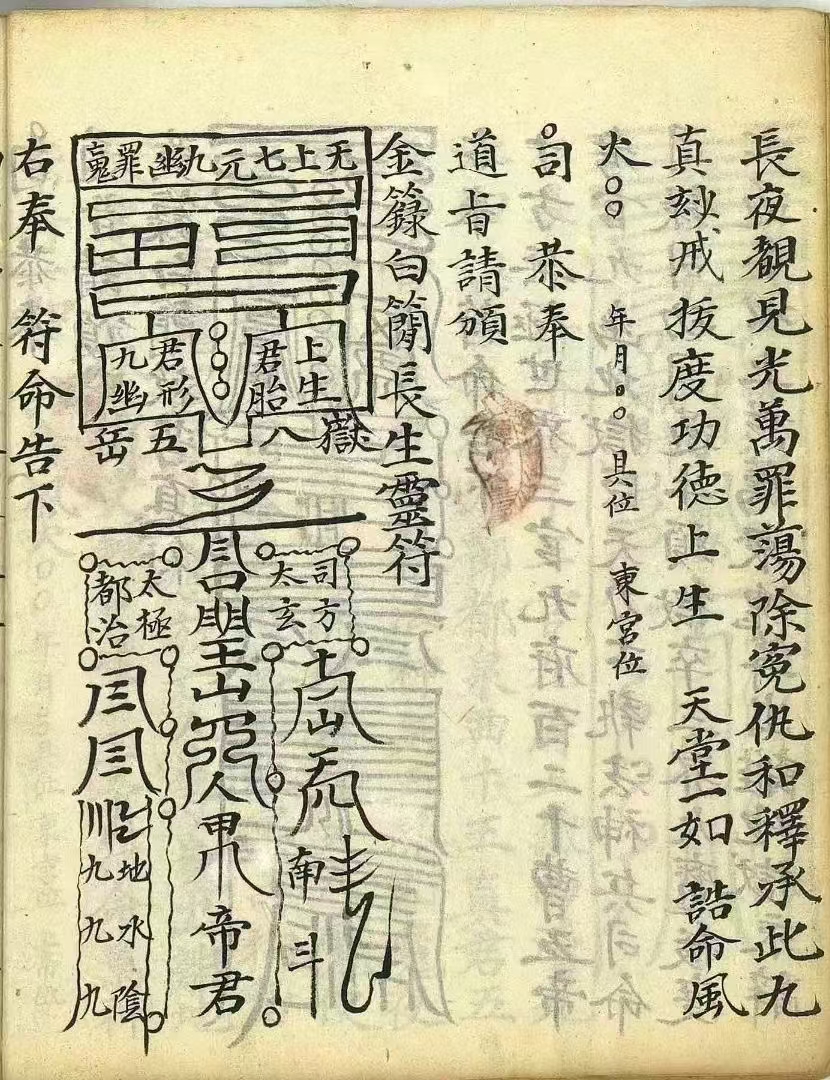 長夜覩見光萬罪蕩除冤仇和釋承此九
真玅戒拔度功德上生 天堂一如 誥命風
火○○ 年月○○具位 東宮位
司 恭奉
道旨請頒
金籙白簡長生靈符
无上七元九幽罪魂
上生
君胎
君形
九幽
八獄
五岳
司方
太玄
南斗
帝君
太極
都治
地水陰
九九九
右奉 符命告下